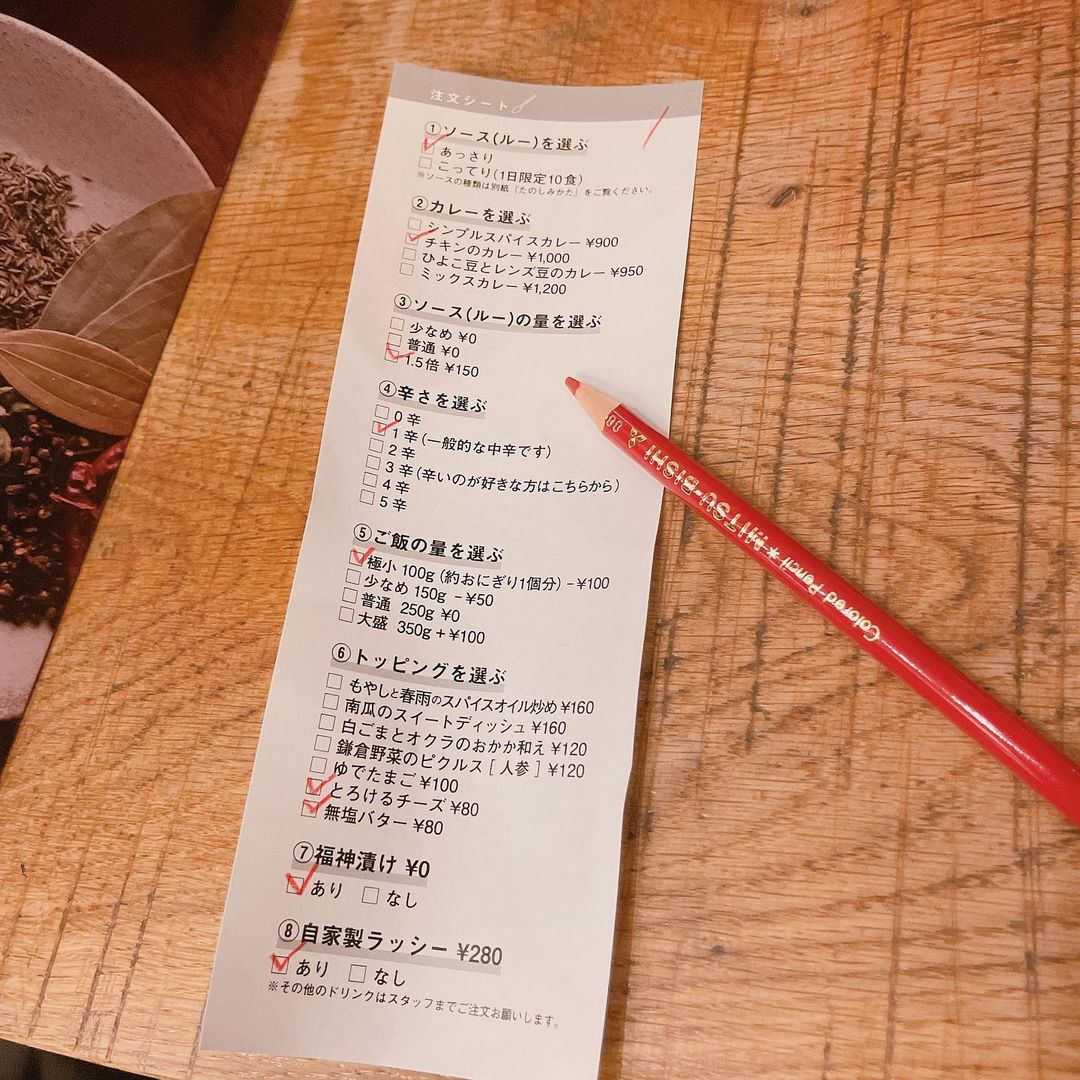 注文シート
①ソース(ルー)を選ぶ
あっさり
こってり(1日限定10食)
※ソースの種類は別紙「たのしみかた」をご覧ください。
②カレーを選ぶ
シンプルスパイスカレー ¥900
チキンのカレー ¥1,000
ひよこ豆とレンズ豆のカレー ¥950
ミックスカレー ¥1,200
③ソース(ルー)の量を選ぶ
少なめ ¥0
普通 ¥0
1.5倍 ¥150
④辛さを選ぶ
0辛
1辛(一般的な中辛です)
2辛
3辛(辛いのが好きな方はこちらから)
4辛
5辛
⑤ご飯の量を選ぶ
極小 100g (約おにぎり1個分) -¥100
少なめ 150g -¥50
普通 250g ¥0
大盛 350g +¥100
⑥トッピングを選ぶ
もやしと春雨のスパイスオイル炒め ¥160
南瓜のスイートディッシュ ¥160
白ごまとオクラのおかか和え ¥120
鎌倉野菜のピクルス [ 人参 ] ¥120
ゆでたまご ¥100
とろけるチーズ ¥80
無塩バター ¥80
⑦福神漬け ¥0
あり なし
⑧自家製ラッシー ¥280
あり なし
※その他のドリンクはスタッフまでご注文お願いします。
MITSU-BISHI
Colored-Pencil